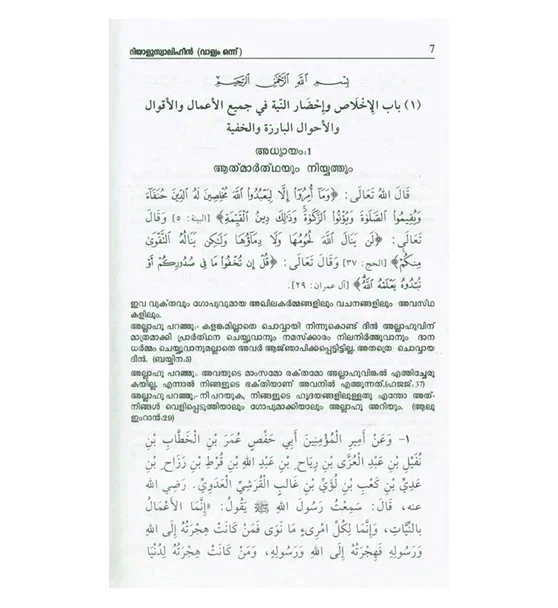 റിയാളുസ്വാലിഹീൻ (വാള്യം ഒന്ന്) 7
بِسْمِ اللَّهِ الرَّحْمَنِ الرَّحِيمِ
(١) باب الإِخْلَاص وإِحْضَار النِّية في جميع الأعمال والأقوال
والأحوال البارزة والخفية
അധ്യായം:1
ആത്മാർത്ഥയും നിയ്യത്തും
قَالَ اللهُ تَعَالَى: ﴿وَمَآ أُمِرُوٓا۟ إِلَّا لِيَعْبُدُوا۟ ٱللَّهَ مُخْلِصِينَ لَهُ ٱلدِّينَ حُنَفَآءَ
وَيُقِيمُوا۟ ٱلصَّلَوٰةَ وَيُؤْتُوا۟ ٱلزَّكَوٰةَ وَذَٰلِكَ دِينُ ٱلْقَيِّمَةِ﴾ [البينة: ٥] وَقَالَ
تَعَالَى: ﴿لَن يَنَالَ ٱللَّهَ لُحُومُهَا وَلَا دِمَآؤُهَا وَلَٰكِن يَنَالُهُ ٱلتَّقْوَىٰ
مِنكُمْ﴾ [الحج: ٣٧] وَقَالَ تَعَالَى: ﴿قُلْ إِن تُخْفُوا۟ مَا فِى صُدُورِكُمْ أَوْ
تُبْدُوهُ يَعْلَمْهُ ٱللَّهُ﴾ [آل عمران: ٢٩].
ഇവ വ്യക്തവും ഗോപ്യവുമായ അഖിലകർമ്മങ്ങളിലും വചനങ്ങളിലും അവസ്ഥ
കളിലും.
അല്ലാഹു പറഞ്ഞു:- കളങ്കമില്ലാതെ ചൊവ്വായി നിന്നുകൊണ്ട് ദീൻ അല്ലാഹുവിന്
മാത്രമാക്കി പ്രാർത്ഥന ചെയ്യുവാനും നമസ്ക്കാരം നിലനിർത്തുവാനും ദാന
ധർമ്മം ചെയ്യുവാനുമല്ലാതെ അവർ ആജ്ഞാപിക്കപ്പെട്ടിട്ടില്ല. അതത്രെ ചൊവ്വായ
ദീൻ. (ബയ്യിന:5)
അല്ലാഹു പറഞ്ഞു:- അവയുടെ മാംസമോ രക്തമോ അല്ലാഹുവിങ്കൽ എത്തിച്ചേരു
കയില്ല. എന്നാൽ നിങ്ങളുടെ ഭക്തിയാണ് അവനിൽ എത്തുന്നത്.(ഹജജ്:37)
അല്ലാഹു പറഞ്ഞു:- നീ പറയുക, നിങ്ങളുടെ ഹൃദയങ്ങളിലുള്ളതു എന്തോ അത്-
നിങ്ങൾ വെളിപ്പെടുത്തിയാലും ഗോപ്യമാക്കിയാലും അല്ലാഹു അറിയും. (ആലു
ഇംറാൻ:29)
١- وَعَنْ أَمِيرِ الْمُؤْمِنِينَ أَبِي حَفْصٍ عُمَرَ بْنِ الْخَطَّابِ بْنِ
نُفَيْلِ بْنِ عَبْدِ الْعُزَّى بْنِ رِيَاحِ بْنِ عَبْدِ اللهِ بْنِ قُرْطِ بْنِ رَزَاحِ بْنِ
عَدِيِّ بْنِ كَعْبِ بْنِ لُؤَيِّ بْنِ غَالِبٍ الْقُرَشِيِّ الْعَدَوِيِّ. رَضِيَ الله
عنه، قَالَ: سَمِعْتُ رَسُولَ اللهِ ﷺ يَقُولُ: «إِنَّمَا الْأَعْمَالُ
بِالنِّيَّاتِ، وَإِنَّمَا لِكُلِّ امْرِىءٍ مَا نَوَى فَمَنْ كَانَتْ هِجْرَتُهُ إِلَى اللهِ
وَرَسُولِهِ فَهِجْرَتُهُ إِلَى اللهِ وَرَسُولِهِ، وَمَنْ كَانَتْ هِجْرَتُهُ لِدُنْيَا